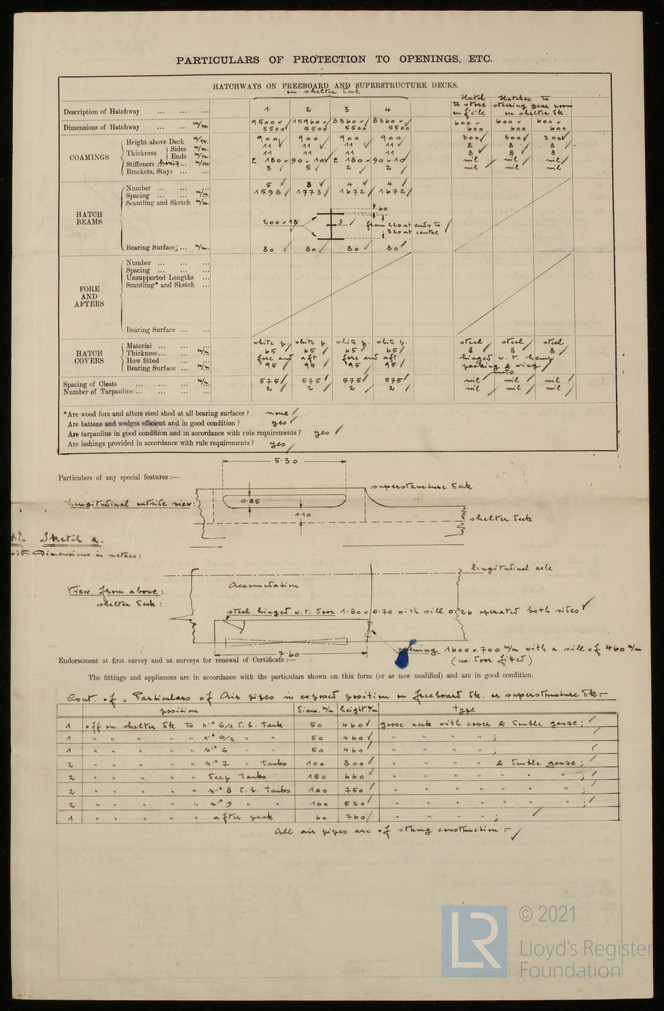 PARTICULARS OF PROTECTION TO OPENINGS, ETC.
HATCHWAYS ON FREEBOARD AND SUPERSTRUCTURE DECKS.
on shelter deck
Hatch to store in f'cle
Hatches to steering gear room on shelter dk.
Description of Hatchway ... ... ... 1 2 3 4
Dimensions of Hatchway ... m/m 9500 x 5500 15960 x 5500 8360 x 5500 8360 x 5500 600 x 600 600 x 600 600 x 600
COAMINGS
Height above Deck m/m 900 900 900 900 300 300 300
Thickness Sides m/m 11 11 11 11 8 8 8
Ends m/m 11 11 11 11 8 8 8
Stiffeners Horiz. m/m 2 180 x 90 x 10 2 180 x 90 x 10 nil nil nil
Brackets, Stays ... 3 5 2 2 nil nil nil
HATCH BEAMS
Number ... ... ... 5 8 4 4
Spacing ... ... m/m 1598 1773 1672 1672
Scantling and Sketch m/m
60
200 x 18
9
from 220 at ends to
320 at centre
Bearing Surface ... m/m 80 80 80 80
FORE AND AFTERS
Number ... ... ...
Spacing ... ... ...
Unsupported Lengths ...
Scantling* and Sketch ...
Bearing Surface ... ...
HATCH COVERS
Material ... ... white p. white p. white p. white p. steel steel steel
Thickness ... ... m/m 65 65 65 65 8 8 8
How fitted ... fore and aft fore and aft hinged w.t. hemp
Bearing Surface ... m/m 95 95 95 95 packing & wing nuts
Spacing of Cleats ... ... ... m/m 575 575 575 575 nil nil nil
Number of Tarpaulins ... ... ... 2 2 2 2 nil nil nil
*Are wood fore and afters steel shod at all bearing surfaces? none
Are battens and wedges efficient and in good condition? yes
Are tarpaulins in good condition and in accordance with rule requirements? yes
Are lashings provided in accordance with rule requirements? yes
5.30
Particulars of any special features:—
superstructure deck
Longitudinal outside view:
0.85
1.10
shelter deck
Sketch a.
with Dimensions in metres:
longitudinal axle
View from above:
Accomodation
shelter deck:
steel hinged w.t. door 1.80 x 0.70 with sill 0.26 operated both sides
7.60
opening 1600 x 700 m/m with a sill of 460 m/m
(no door fitted)
Endorsement at first survey and at surveys for renewal of Certificate:—
The fittings and appliances are in accordance with the particulars shown on this form (or as now modified) and are in good condition.
Cont. of „ Particulars of Air pipes in exposed position on freeboard dk. or superstructure dk -
position diam. m/m height m/m type
1 off on shelter dk to no 6/1 d.b. tank 50 460 goose neck with cover & double gauze;
1 " " " " " no 6/2 " " 50 460 " " " " ;
1 " " " " " no 6 " " 50 460 " " " " ;
2 " " " " " no 7 " tanks 100 800 " " " " & double gauze;
2 " " " " " deep tanks 150 660 " " " " " " ;
2 " " " " " no 8 d.b. tanks 100 750 " " " " " " ;
2 " " " " " no 9 " " 100 520 " " " " " " ;
1 " " " " " after peak 60 760 " " " " ;
All air pipes are of strong construction -
LR
© 2021
Lloyd's Register
Foundation